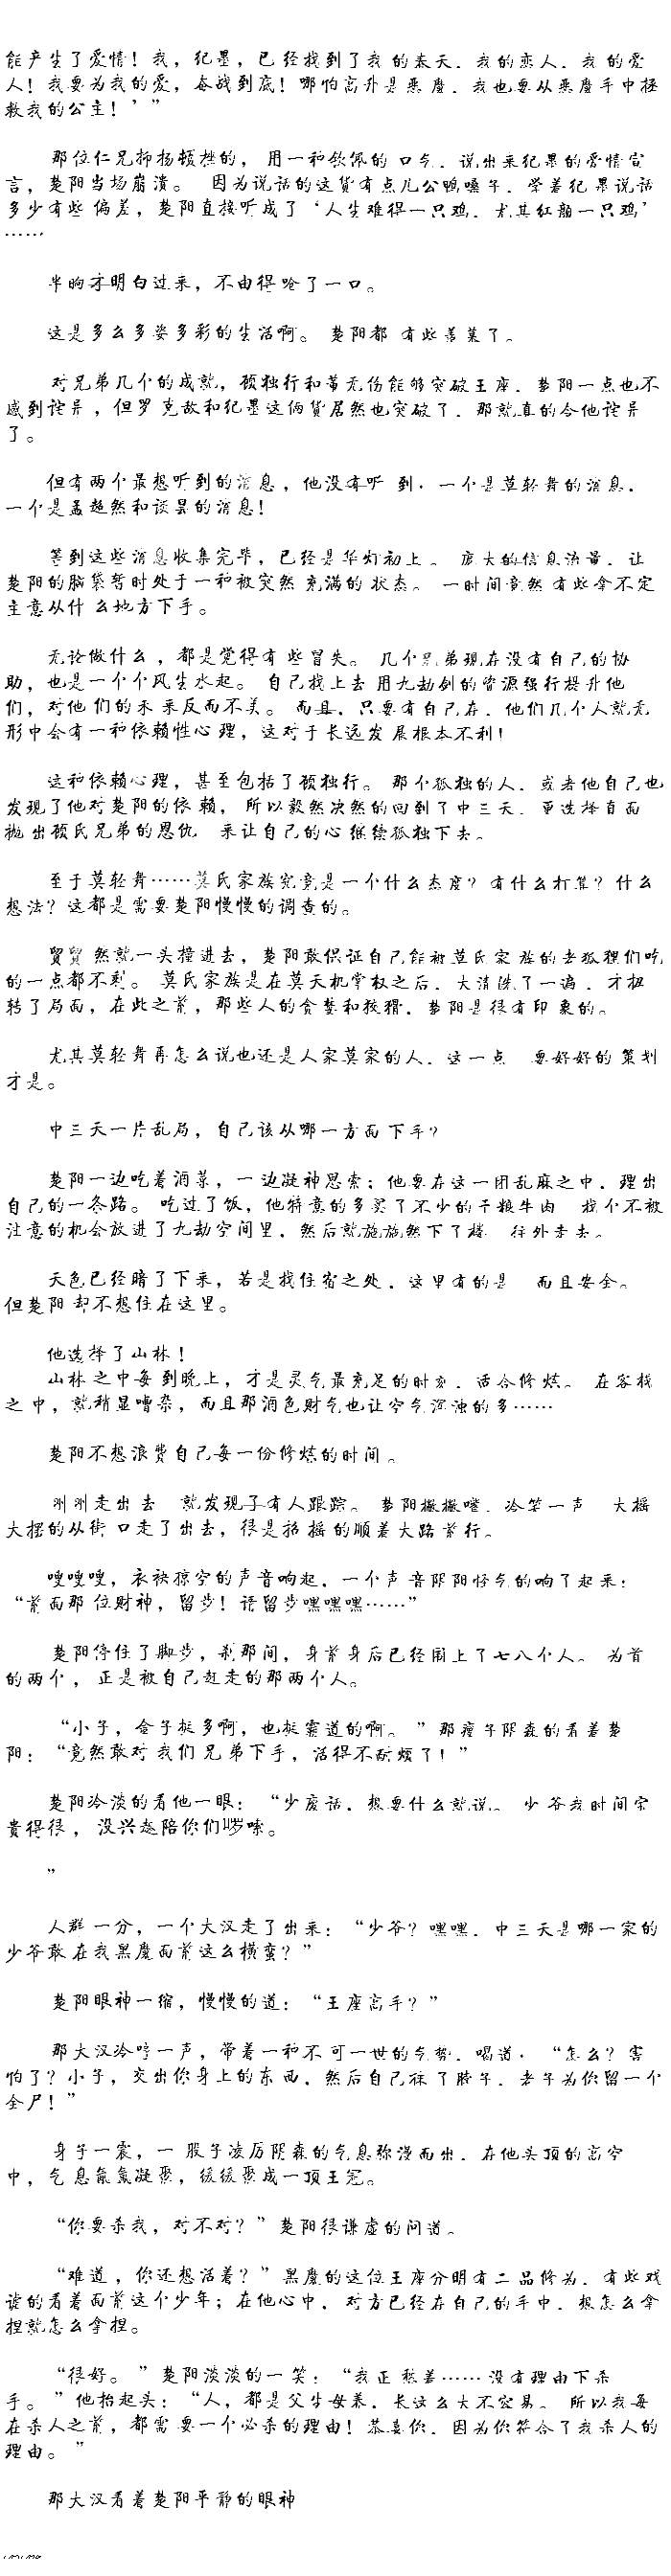 能产生了爱情！我，纪墨，已经找到了我的春天、我的恋人、我的爱
人！我要为我的爱，奋战到底！哪怕高升是恶魔，我也要从恶魔手中拯
救我的公主！’”
那位仁兄抑扬顿挫的，用一种钦佩的口气，说出来纪墨的爱情宣
言，楚阳当场崩溃。 因为说话的这货有点儿公鸭嗓子，学着纪墨说话
多少有些偏差，楚阳直接听成了‘人生难得一只鸡，尤其红颜一只鸡’
……
半晌才明白过来，不由得呛了一口。
这是多么多姿多彩的生活啊。 楚阳都有些羡慕了。
对兄弟几个的成就，顾独行和董无伤能够突破王座，楚阳一点也不
感到诧异，但罗克敌和纪墨这俩货居然也突破了，那就真的令他诧异
了。
但有两个最想听到的消息，他没有听到，一个是莫轻舞的消息，
一个是孟超然和谈昙的消息！
等到这些消息收集完毕，已经是华灯初上。 庞大的信息流量，让
楚阳的脑袋暂时处于一种被突然充满的状态。 一时间竟然有些拿不定
主意从什么地方下手。
无论做什么，都是觉得有些冒失。 几个兄弟现在没有自己的协
助，也是一个个风生水起。 自己找上去用九劫剑的资源强行提升他
们，对他们的未来反而不美。 而且，只要有自己在，他们几个人就无
形中会有一种依赖性心理，这对于长远发展根本不利！
这种依赖心理，甚至包括了顾独行。 那个孤独的人，或者他自己也
发现了他对楚阳的依赖，所以毅然决然的回到了中三天，更选择直面
抛出顾氏兄弟的恩仇 来让自己的心继续孤独下去。
至于莫轻舞……莫氏家族究竟是一个什么态度？有什么打算？什么
想法？这都是需要楚阳慢慢的调查的。
贸贸然就一头撞进去，楚阳敢保证自己能被莫氏家族的老狐狸们吃
的一点都不剩。 莫氏家族是在莫天机掌权之后，大清洗了一遍，才扭
转了局面，在此之前，那些人的贪婪和狡猾，楚阳是很有印象的。
尤其莫轻舞再怎么说也还是人家莫家的人，这一点 要好好的策划
才是。
中三天一片乱局，自己该从哪一方面下手？
楚阳一边吃着酒菜，一边凝神思索；他要在这一团乱麻之中，理出
自己的一条路。 吃过了饭，他特意的多买了不少的干粮牛肉 找个不被
注意的机会放进了九劫空间里，然后就施施然下了楼 往外走去。
天色已经暗了下来，若是找住宿之处，这里有的是 而且安全。
但楚阳却不想住在这里。
他选择了山林！
山林之中每到晚上，才是灵气最充足的时刻，适合修炼。 在客栈
之中，就稍显嘈杂，而且那酒色财气也让空气浑浊的多……
楚阳不想浪费自己每一份修炼的时间。
刚刚走出去 就发现了有人跟踪。 楚阳撇撇嘴，冷笑一声 大摇
大摆的从街口走了出去，很是招摇的顺着大路前行。
嗖嗖嗖，衣袂掠空的声音响起，一个声音阴阳怪气的响了起来：
“前面那位财神，留步！请留步嘿嘿嘿……”
楚阳停住了脚步，刹那间，身前身后已经围上了七八个人。 为首
的两个，正是被自己赶走的那两个人。
“小子，金子挺多啊，也挺霸道的啊。 ”那瘦子阴森的看着楚
阳：“竟然敢对我们兄弟下手，活得不耐烦了！”
楚阳冷淡的看他一眼：“少废话，想要什么就说。 少爷我时间宝
贵得很，没兴趣陪你们啰嗦。
”
人群一分，一个大汉走了出来：“少爷？嘿嘿，中三天是哪一家的
少爷敢在我黑魔面前这么横蛮？”
楚阳眼神一缩，慢慢的道：“王座高手？”
那大汉冷哼一声，带着一种不可一世的气势，喝道，“怎么？害
怕了？小子，交出你身上的东西，然后自己抹了脖子，老子为你留一个
全尸！”
身子一震，一股子凌厉阴森的气息弥漫而出，在他头顶的高空
中，气息氤氲凝聚，缓缓聚成一顶王冠。
“你要杀我，对不对？”楚阳很谦虚的问道。
“难道，你还想活着？”黑魔的这位王座分明有二品修为，有些戏
谑的看着面前这个少年；在他心中，对方已经在自己的手中，想怎么拿
捏就怎么拿捏。
“很好。 ”楚阳淡淡的一笑：“我正愁着……没有理由下杀
手。 ”他抬起头：“人，都是父生母养，长这么大不容易。 所以我每
在杀人之前，都需要一个必杀的理由！恭喜你，因为你符合了我杀人的
理由。 ”
那大汉看着楚阳平静的眼神